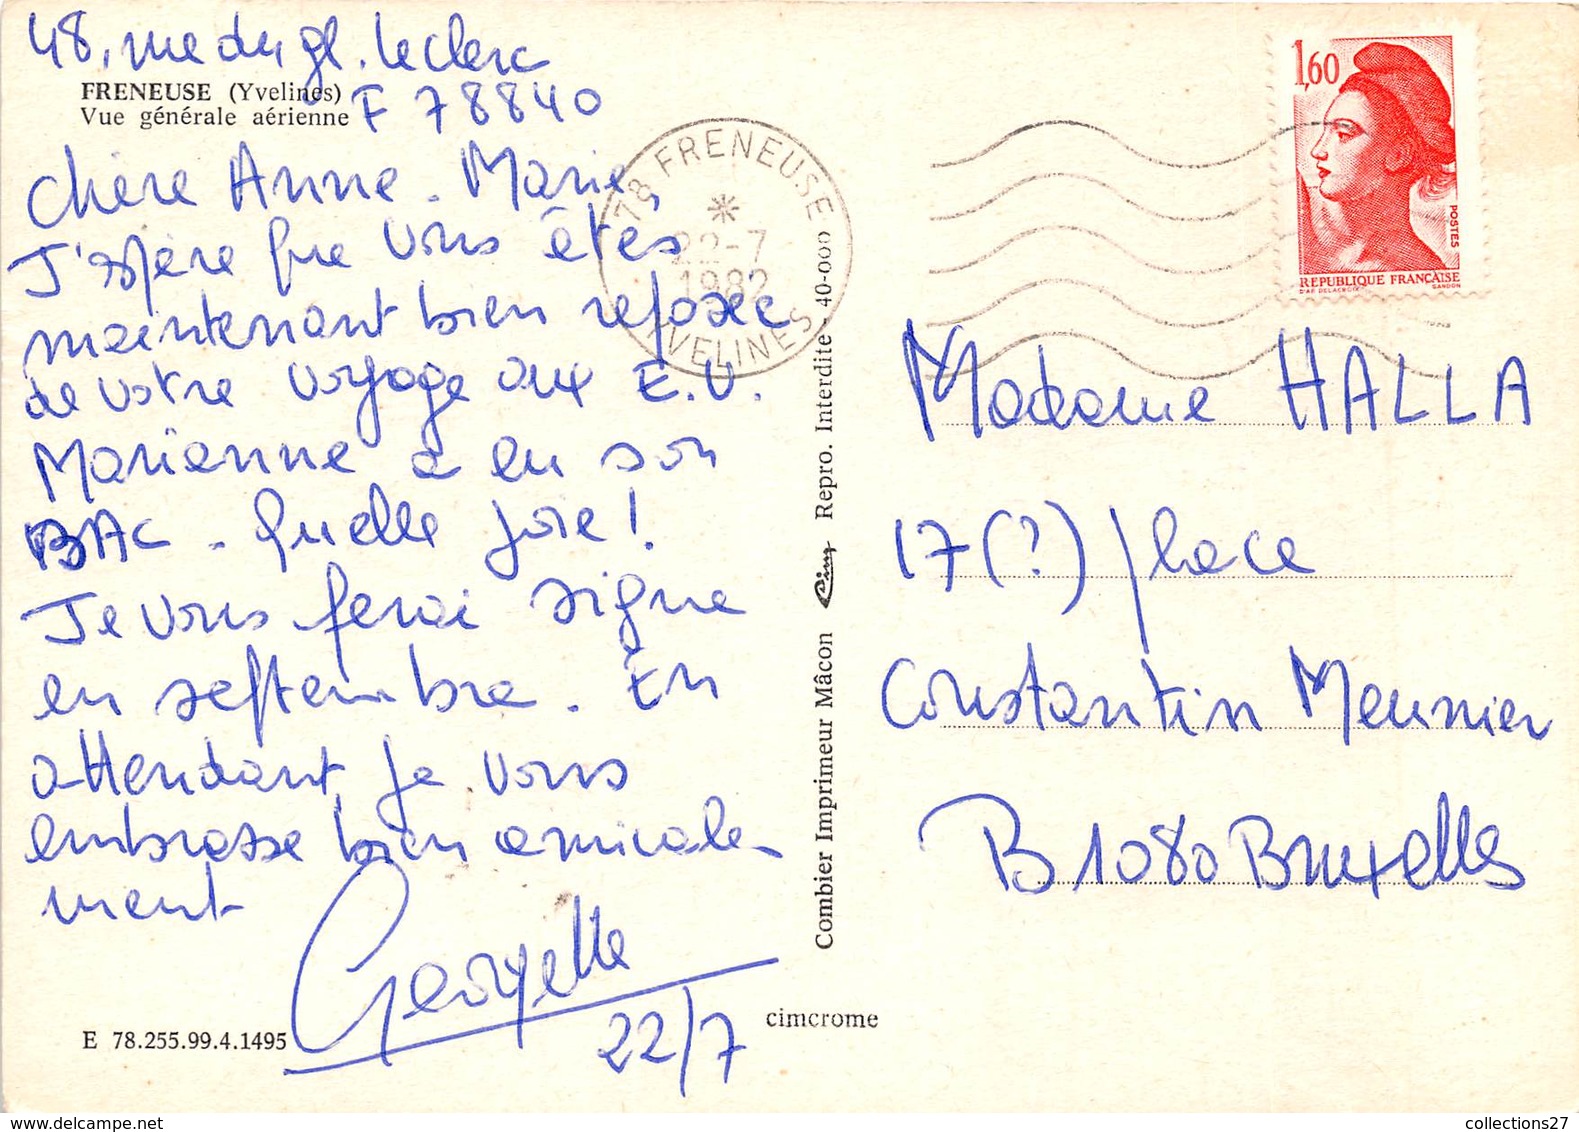 48, rue du gl. Leclerc
FRENEUSE (Yvelines)
Vue générale aérienne
F 78840
Chère Anne-Marie,
J'espère que vous êtes
maintenant bien reposée
de votre voyage aux E.U.
Marianne a eu son
BAC. Quelle joie !
Je vous ferai signe
en septembre. En
attendant, je vous
embrasse bien amicale-
ment
Georgette
22/7
E 78.255.99.4.1495
cimcrome
78 FRENEUSE
22-7
1982
YVELINES
Combier Imprimeur Mâcon Cim Repro. Interdite - 40-000
1,60
POSTES
REPUBLIQUE FRANÇAISE
D'AP. DELACROIX
GANDON
Madame HALLA
17 (?) place
Constantin Meunier
B 1080 Bruxelles
collections27